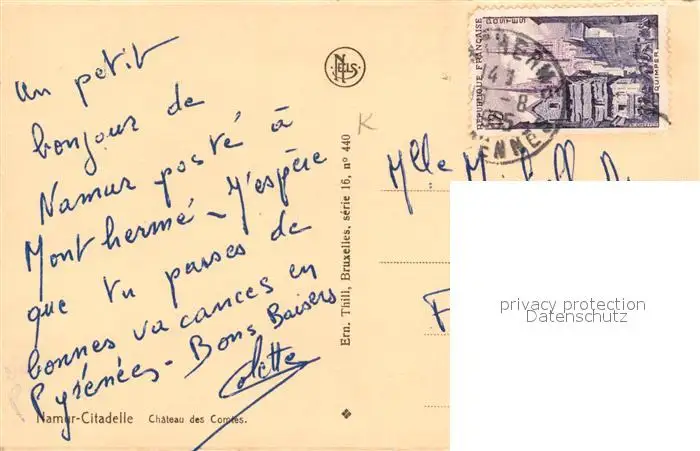 Un petit
bonjour de
Namur posté à
Monthermé - J'espère
que tu passes de
bonnes vacances en
Pyrénées - Bons Baisers
Colette
Namur-Citadelle Château des Comtes.
NELS
Ern. Thill, Bruxelles, série 16, n° 440
K
POSTES
RÉPUBLIQUE FRANÇAISE
QUIMPER
HERM
-8
ENNES
Mlle
F
privacy protection
Datenschutz